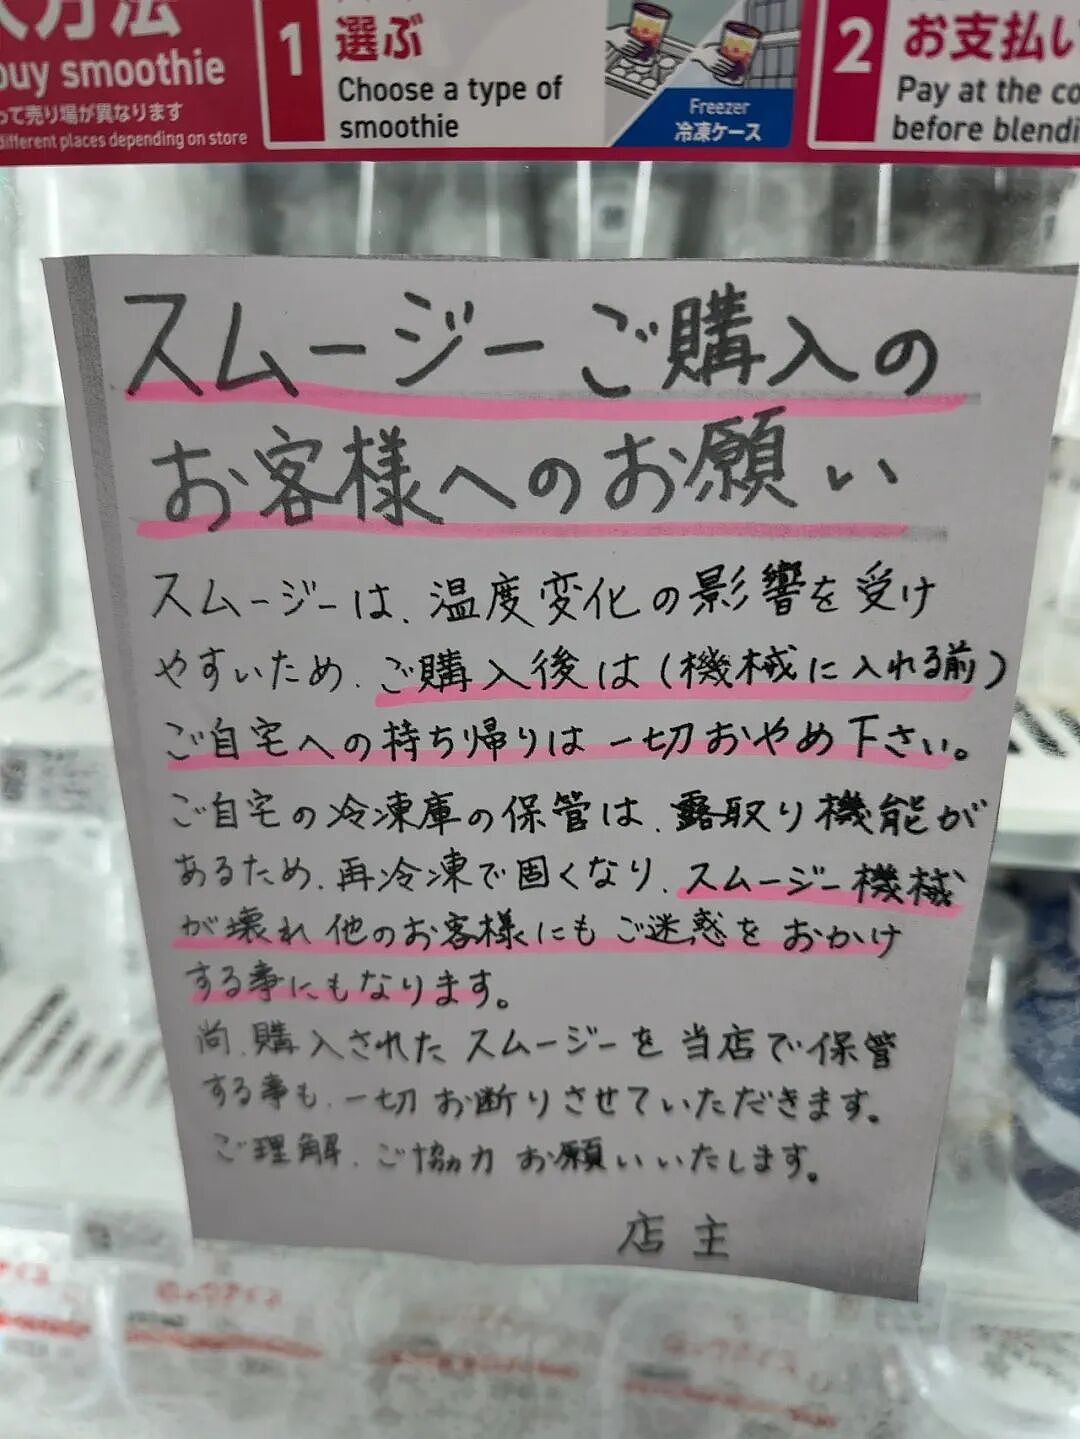 方法
buy smoothie
って売り場が異なります
different places depending on store
1
選ぶ
Choose a type of
smoothie
Freezer
冷凍ケース
2
お支払い
Pay at the
before
スムージーご購入の
お客様へのお願い
スムージーは、温度変化の影響を受け
やすいため、ご購入後は(機械に入れる前)
ご自宅への持ち帰りは一切おやめ下さい。
ご自宅の冷凍庫の保管は、霜取り機能が
あるため、再冷凍で固くなり、スムージー機械
が壊れ他のお客様にもご迷惑をおかけ
する事にもなります。
尚、購入されたスムージーを当店で保管
する事も、一切お断りさせていただきます。
ご理解、ご協力お願いいたします。
店主
アイス
ロックアイス
ロックアイス